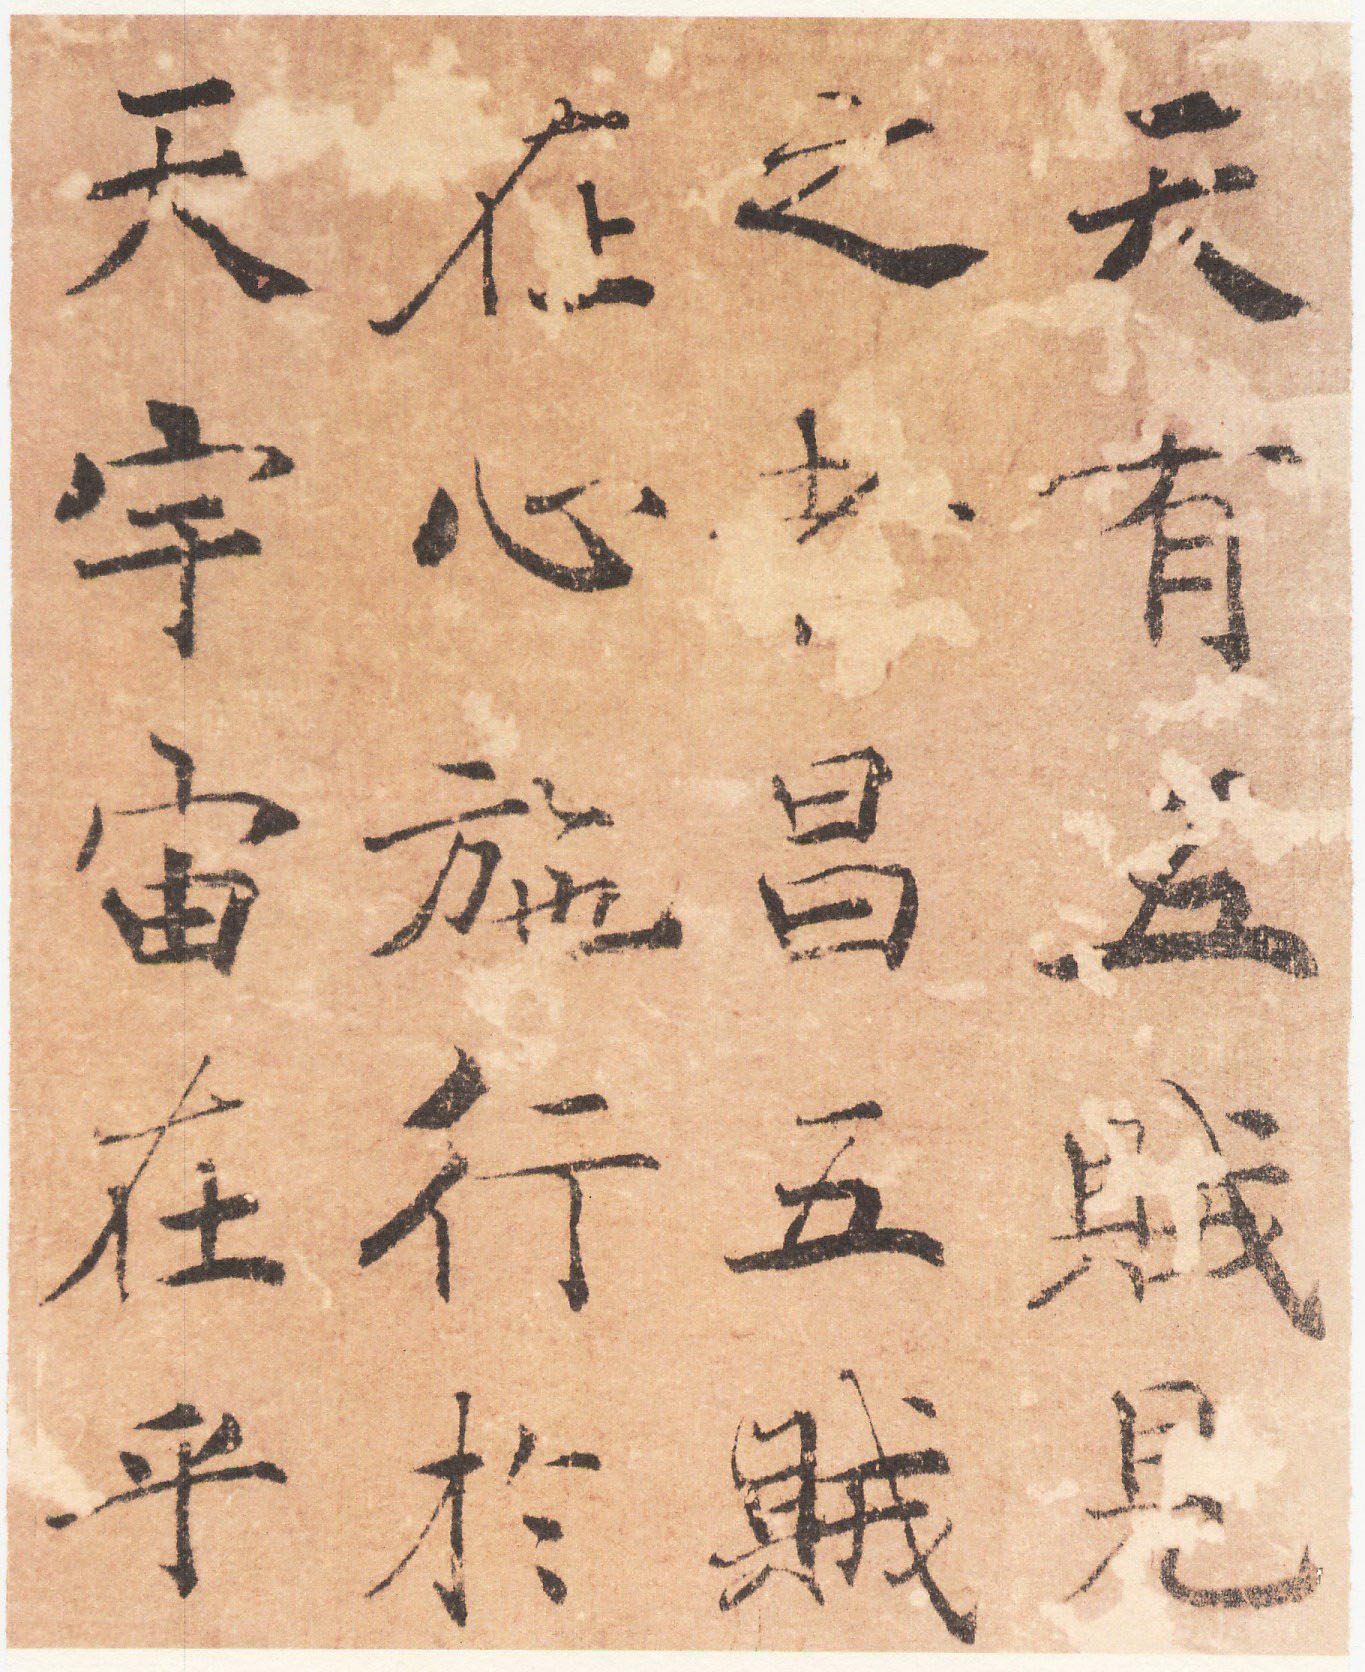 天有五賊見
之昌五賊
在心施行於
天宇宙在乎